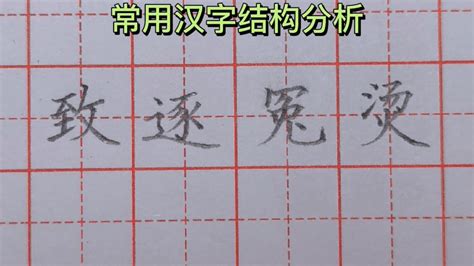 常用汉字结构分析
致逐冤烫